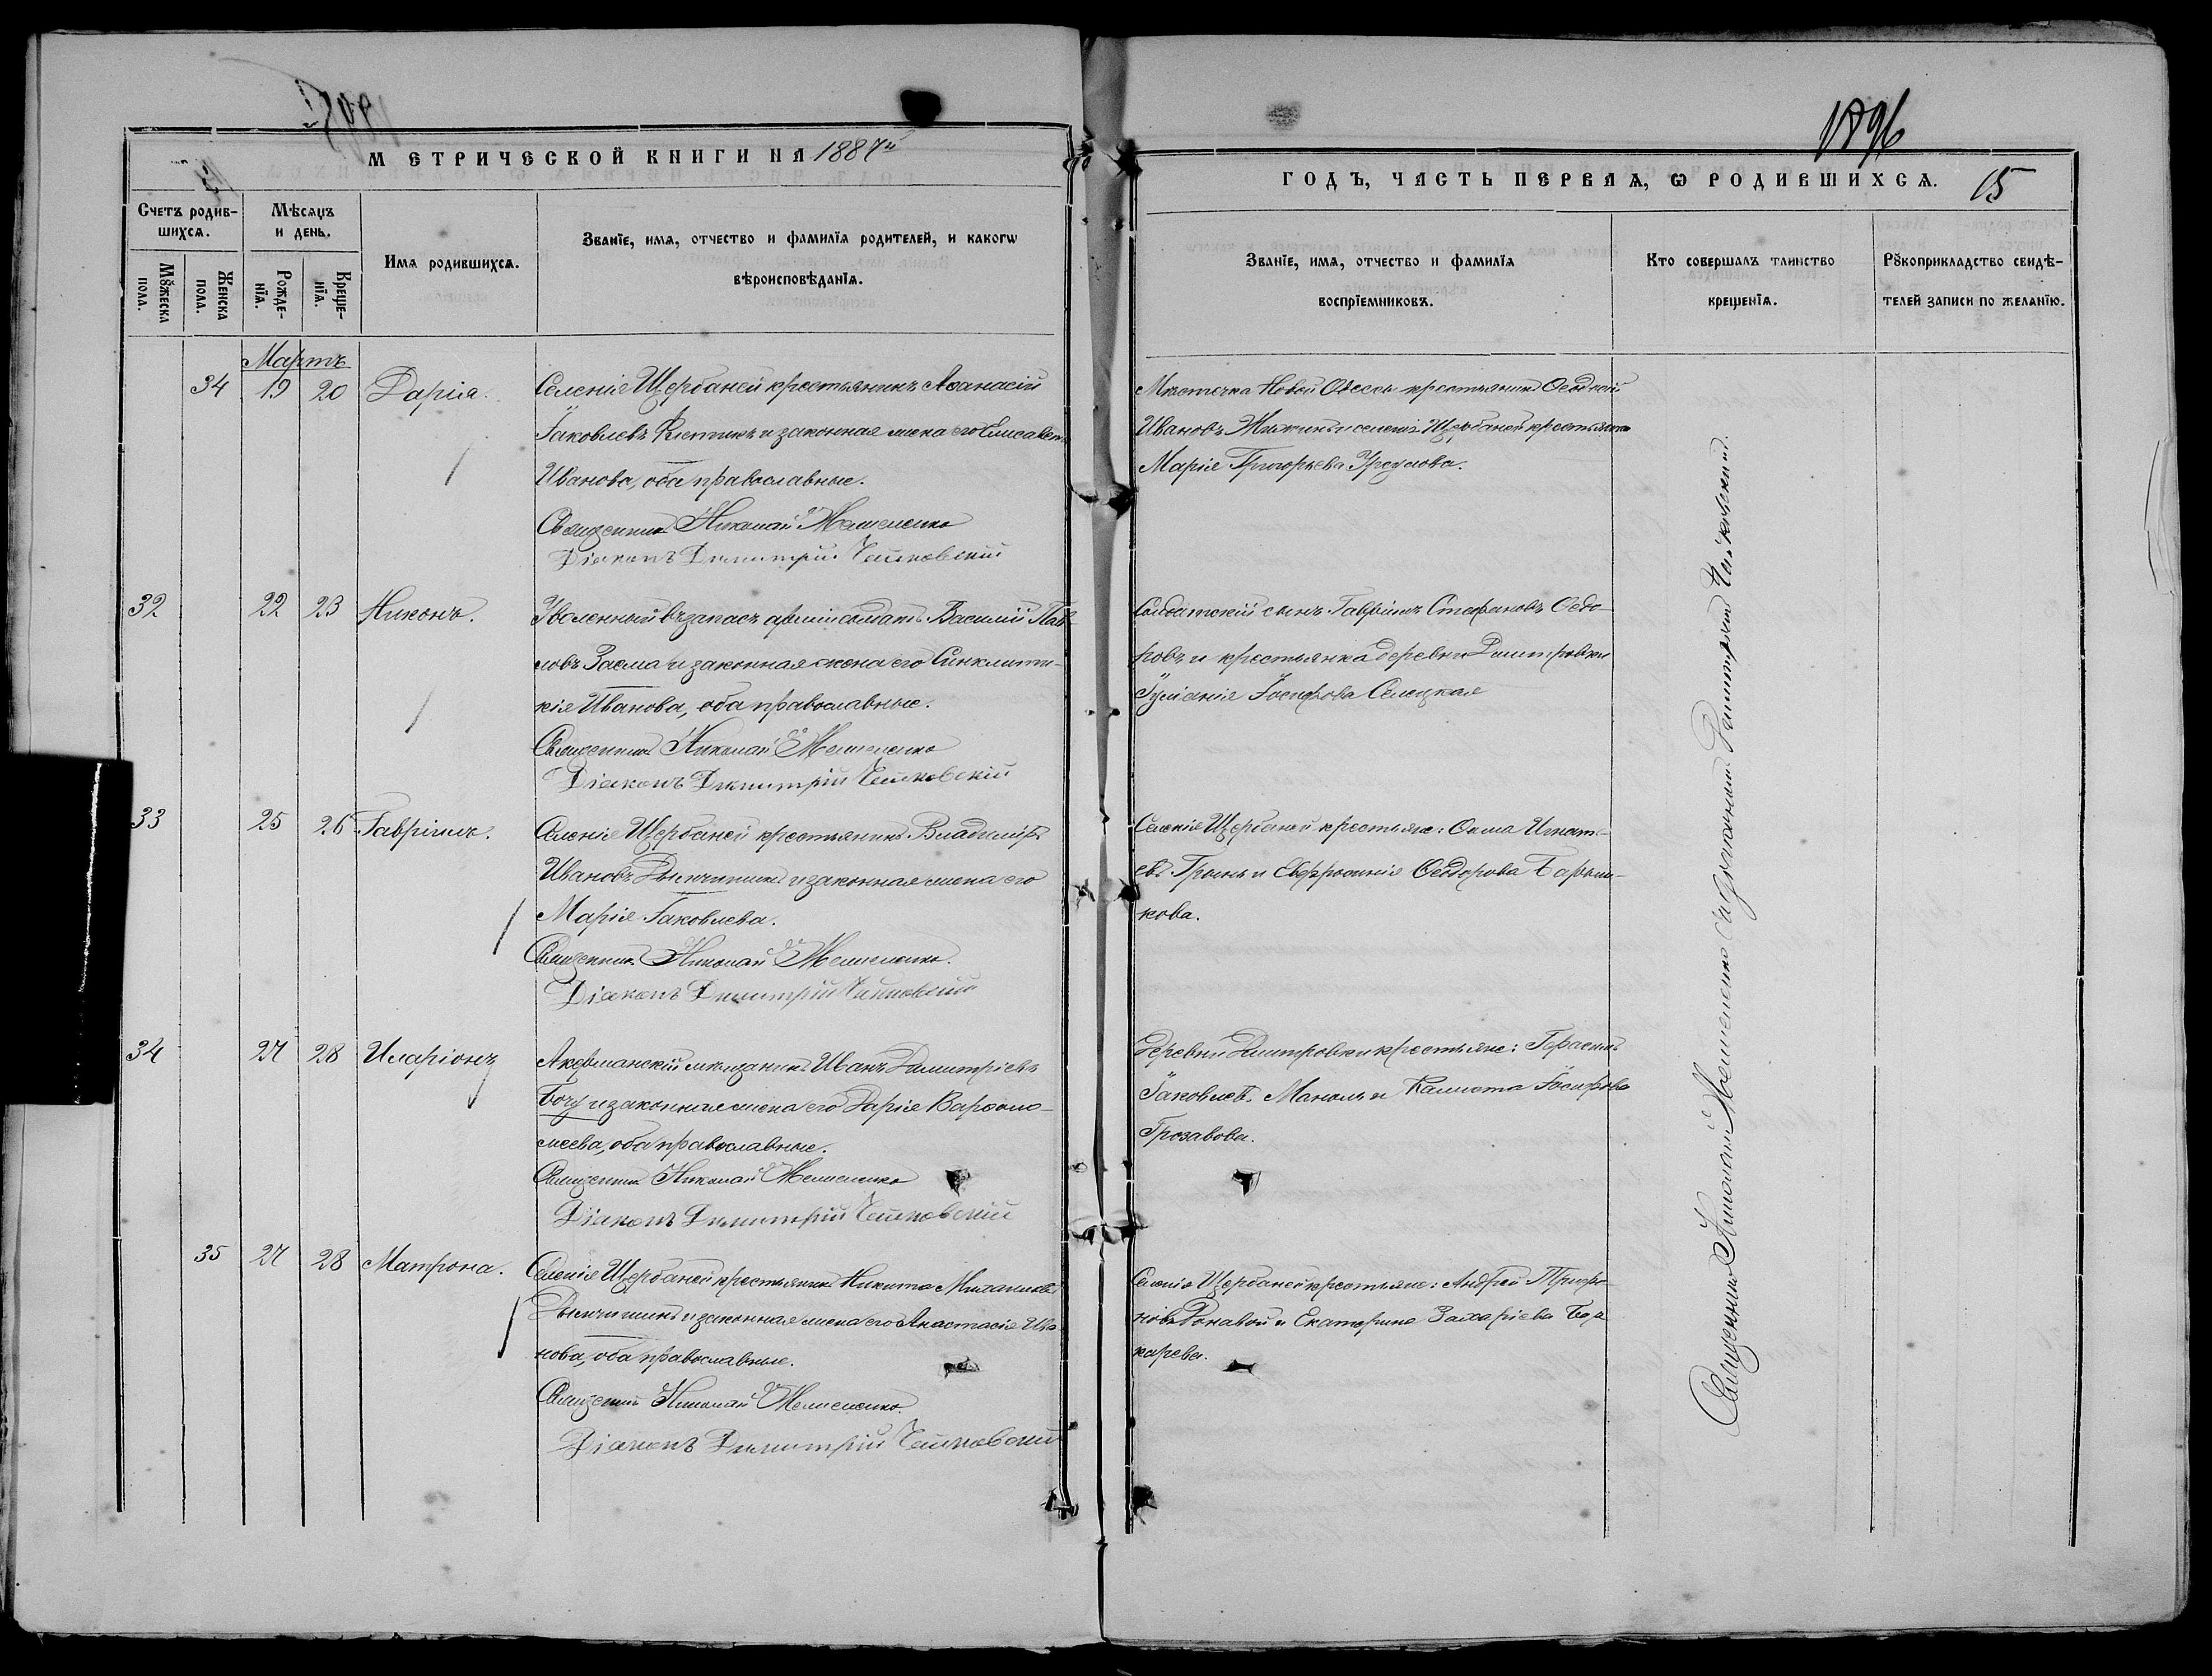 1896
МЕТРИЧЕСКОЙ КНИГИ НА 1887й
ГОДЪ, ЧАСТЬ ПЕРВАЯ, Ѡ РОДИВШИХСЯ. 15
Счетъ родив-
шихся.
Мꙋжеска
пола.
Женска
пола.
Мѣсяцъ
и день.
Рожде-
нїя.
Креще-
нїя.
Имя родившихся.
Званїе, имя, отчество и фамилїя родителей, и какогѡ
вѣроисповѣданїя.
Званїе, имя, отчество и фамилїя
воспрїемниковъ.
Кто совершалъ таинство
крещенїя.
Рꙋкоприкладство свидѣ-
телей записи по желанїю.
Мартъ
34 19 20 Дарія.
Селенія Щербаней крестьянинъ Аѳанасій
Іаковлевъ и законная жена его Елисавета
Иванова, оба православные.
Священникъ Николай Мемеленко
Діаконъ Димитрій Чайковскій
Мѣстечка Новой Одессы крестьянинъ Ѳеодосій
Ивановъ и селенія Щербаней крестьянка
Марія Григорьева Урсулова.
32 22 23 Никонъ.
Уволенный въ запасъ арміи солдатъ Василій Пав-
ловъ Заема и законная жена его Синклити-
кія Иванова, оба православные.
Священникъ Николай Мемеленко
Діаконъ Димитрій Чайковскій
Солдатскій сынъ Гавріилъ Стефановъ Ѳедо-
ровъ и крестьянка деревни Димитровки
Іуліанія Іосифова Селецкая
33 25 26 Гавріилъ.
Селенія Щербаней крестьянинъ Владиміръ
Ивановъ и законная жена его
Марія Іаковлева.
Священникъ Николай Мемеленко.
Діаконъ Димитрій Чайковскій
Селенія Щербаней крестьяне: Ѳома Игнать-
евъ и Евфросинія Ѳеодорова
кова.
34 27 28 Иларіонъ
Акерманскій мѣщанинъ Иванъ Димитріевъ
Богу и законная жена его Дарія Варѳоло-
меева, оба православные.
Священникъ Николай Мемеленко
Діаконъ Димитрій Чайковскій
Деревни Димитровки крестьяне: Герасимъ
Іаковлевъ и Іосифова
Грозавова.
35 27 28 Матрона.
Селенія Щербаней крестьянинъ Никита Михаиловъ
и законная жена его Анастасія Ива-
нова, оба православные.
Священникъ Николай Мемеленко.
Діаконъ Димитрій Чайковскій
Селенія Щербаней крестьяне: Андрей Трифо-
новъ и Екатерина Захаріева
карева.
Священникъ Николай Мемеленко съ діакономъ Димитріемъ Чайковскимъ.